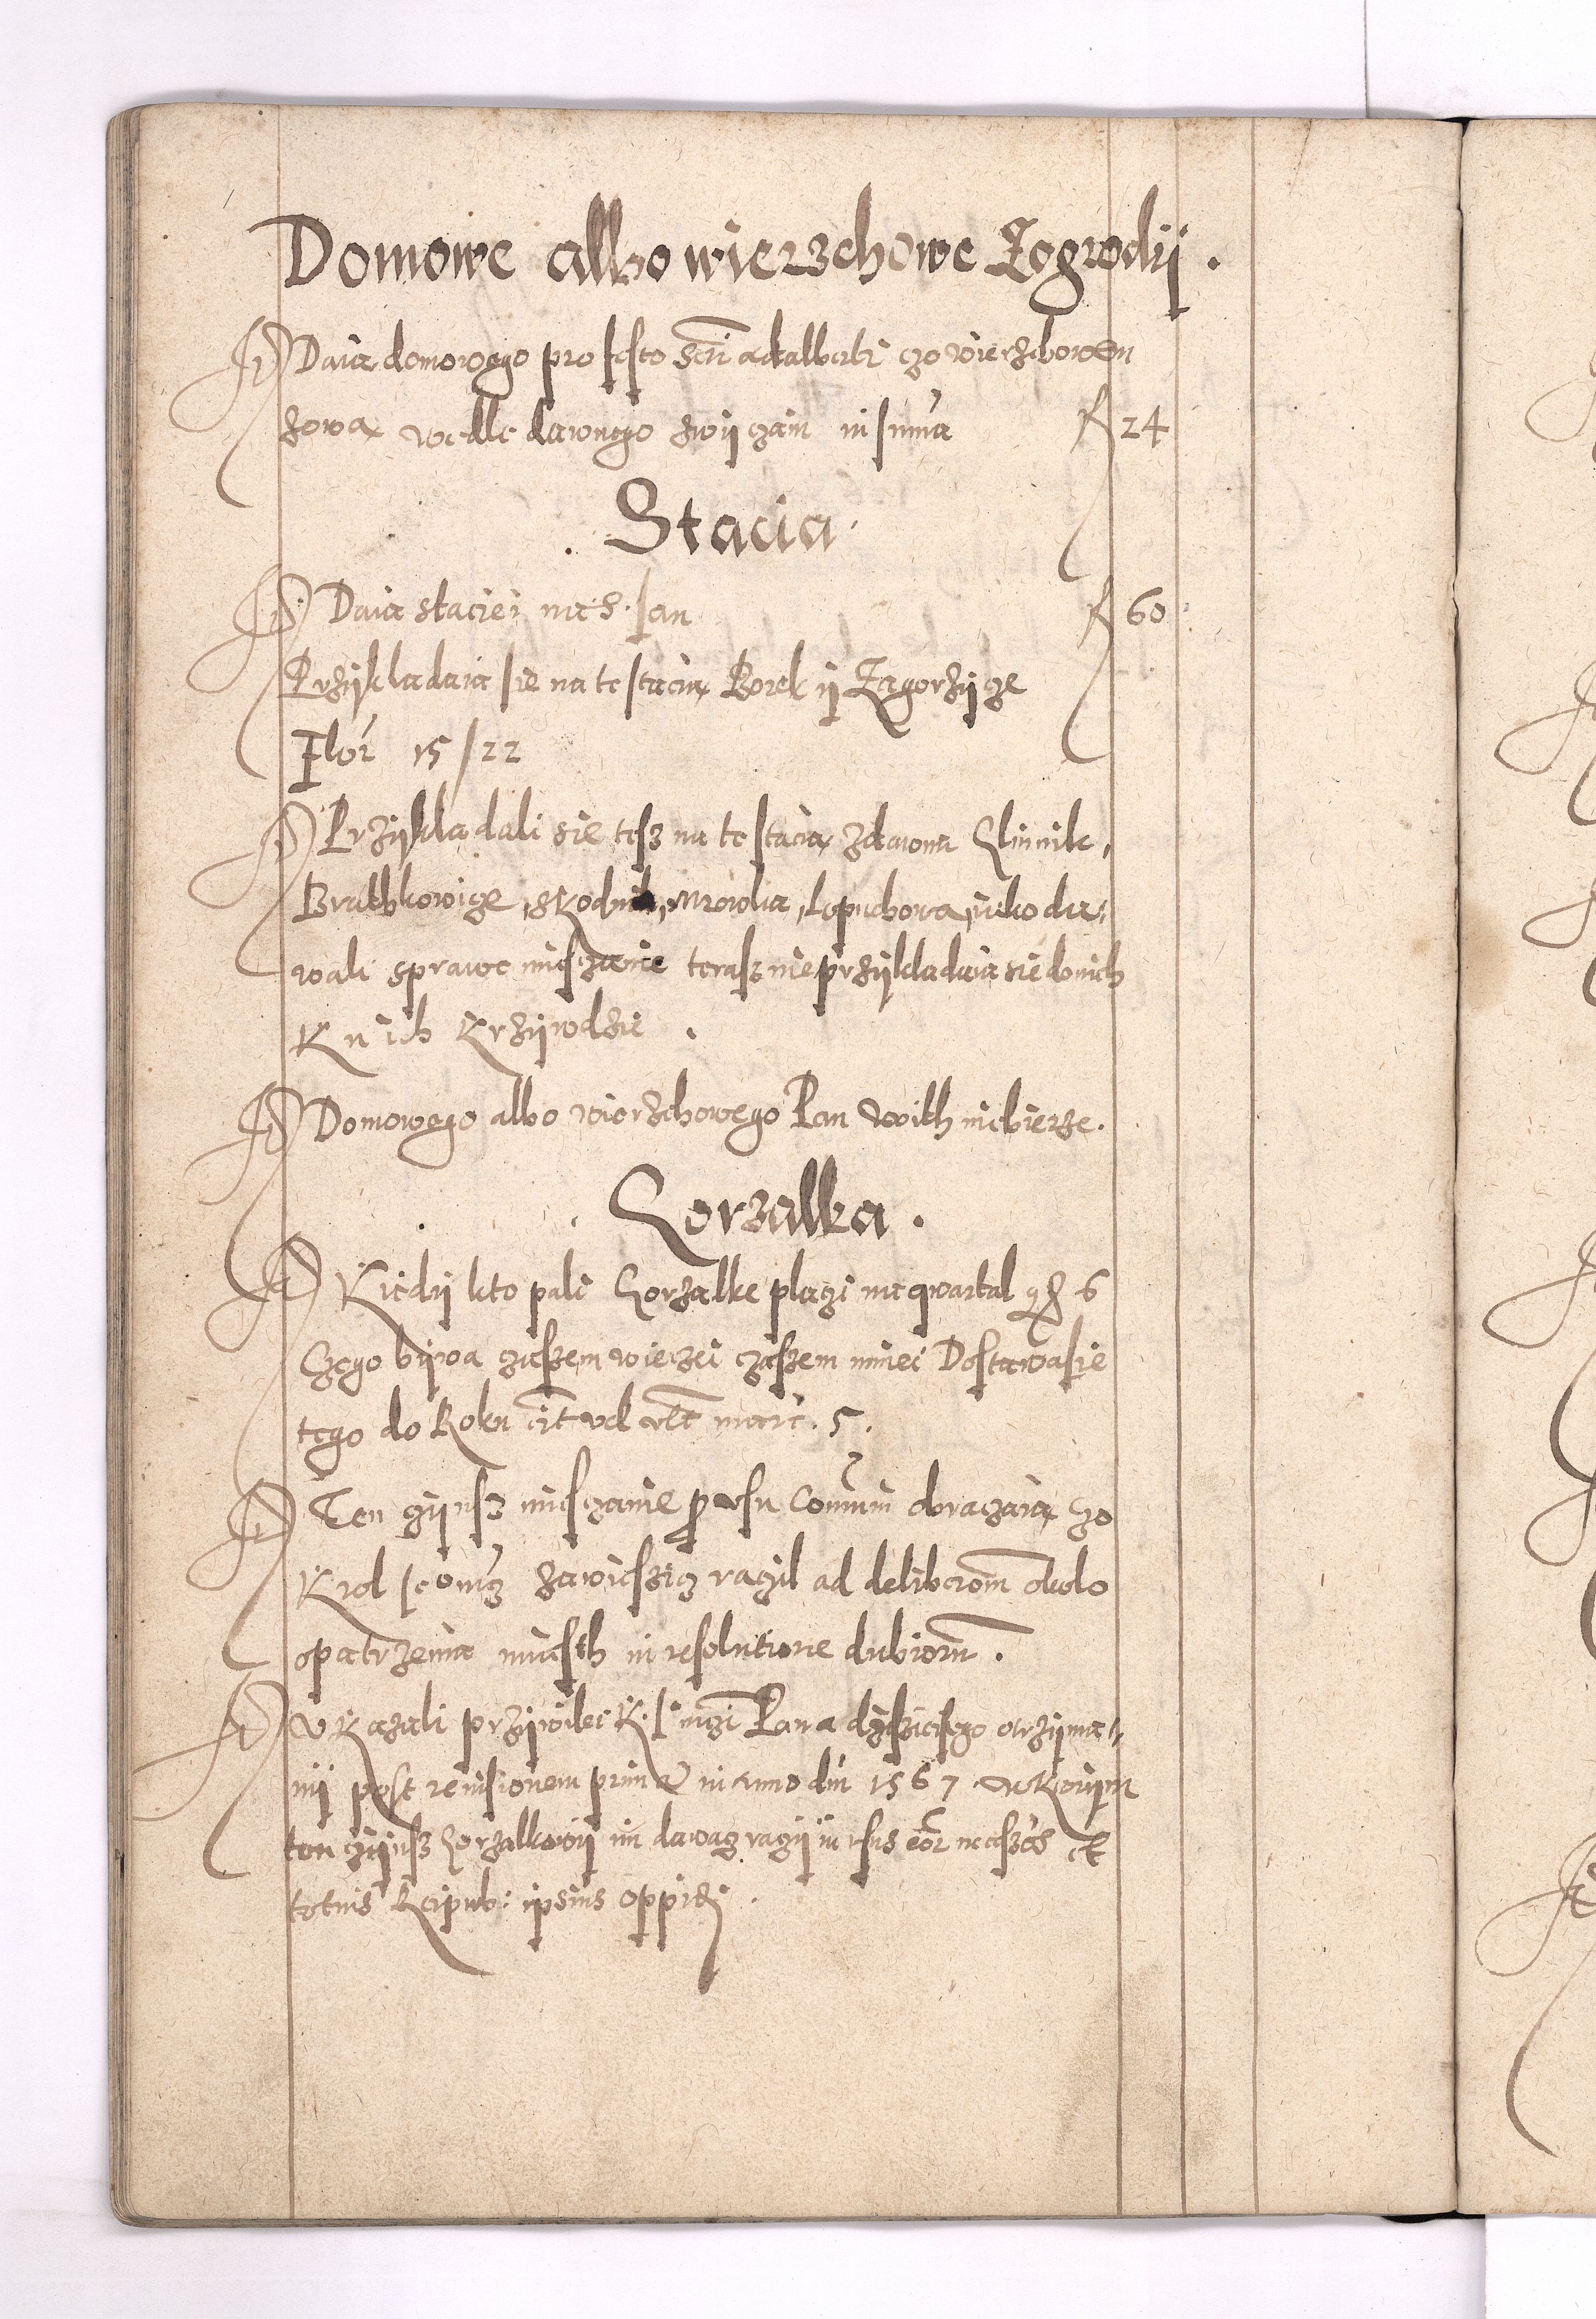 Domowe albo wierzchowe Zogrodÿ.
Daia domowego pro festo Scti Adalberti czo wierzchowem
zowa wedle dawnego zwÿczaiu in suma f 24
Stacia
Daia staciei na S. Jan f 60
Przÿkladaia sie na te stacia Borek ÿ Zagorzÿcze
Flor 15/22
Przÿkladali sie tesz na te stacia zdawna Glinnik,
Brathkowicze, Skodna, Mrowla, Lopuchowa, iako da-
wali sprawe miesczanie terasz nieprzÿkladaia sie do nich
K nich Krzÿwdzie.
Domowego albo wierzchowego Pan With niebierze.
Gorzalka.
Kiedÿ kto pali Gorzalke placzi na qwartal gr 6
Czego bÿwa czaszem wieczei czaszem mniei Dostawasie
tego do Roku cirt vel vlt marc. 5.
Ten czÿnsz miesczanie pro vsu Comuni obraczaia czo
Krol Jeomcz zawieszicz raczil ad deliberacionem okolo
opatrzenia miasth in resolutione dubiorum.
Vkazali przÿwilei K. J mczi Pana dziszieisego otrzÿma-
nÿ post reuisionem prima in anno dni 1567 w Ktorÿm
ten czÿnsz Gorzalkowÿ im dawacz raczÿ in vsus eor necessos et
totius Reipub: ipsius oppidi.